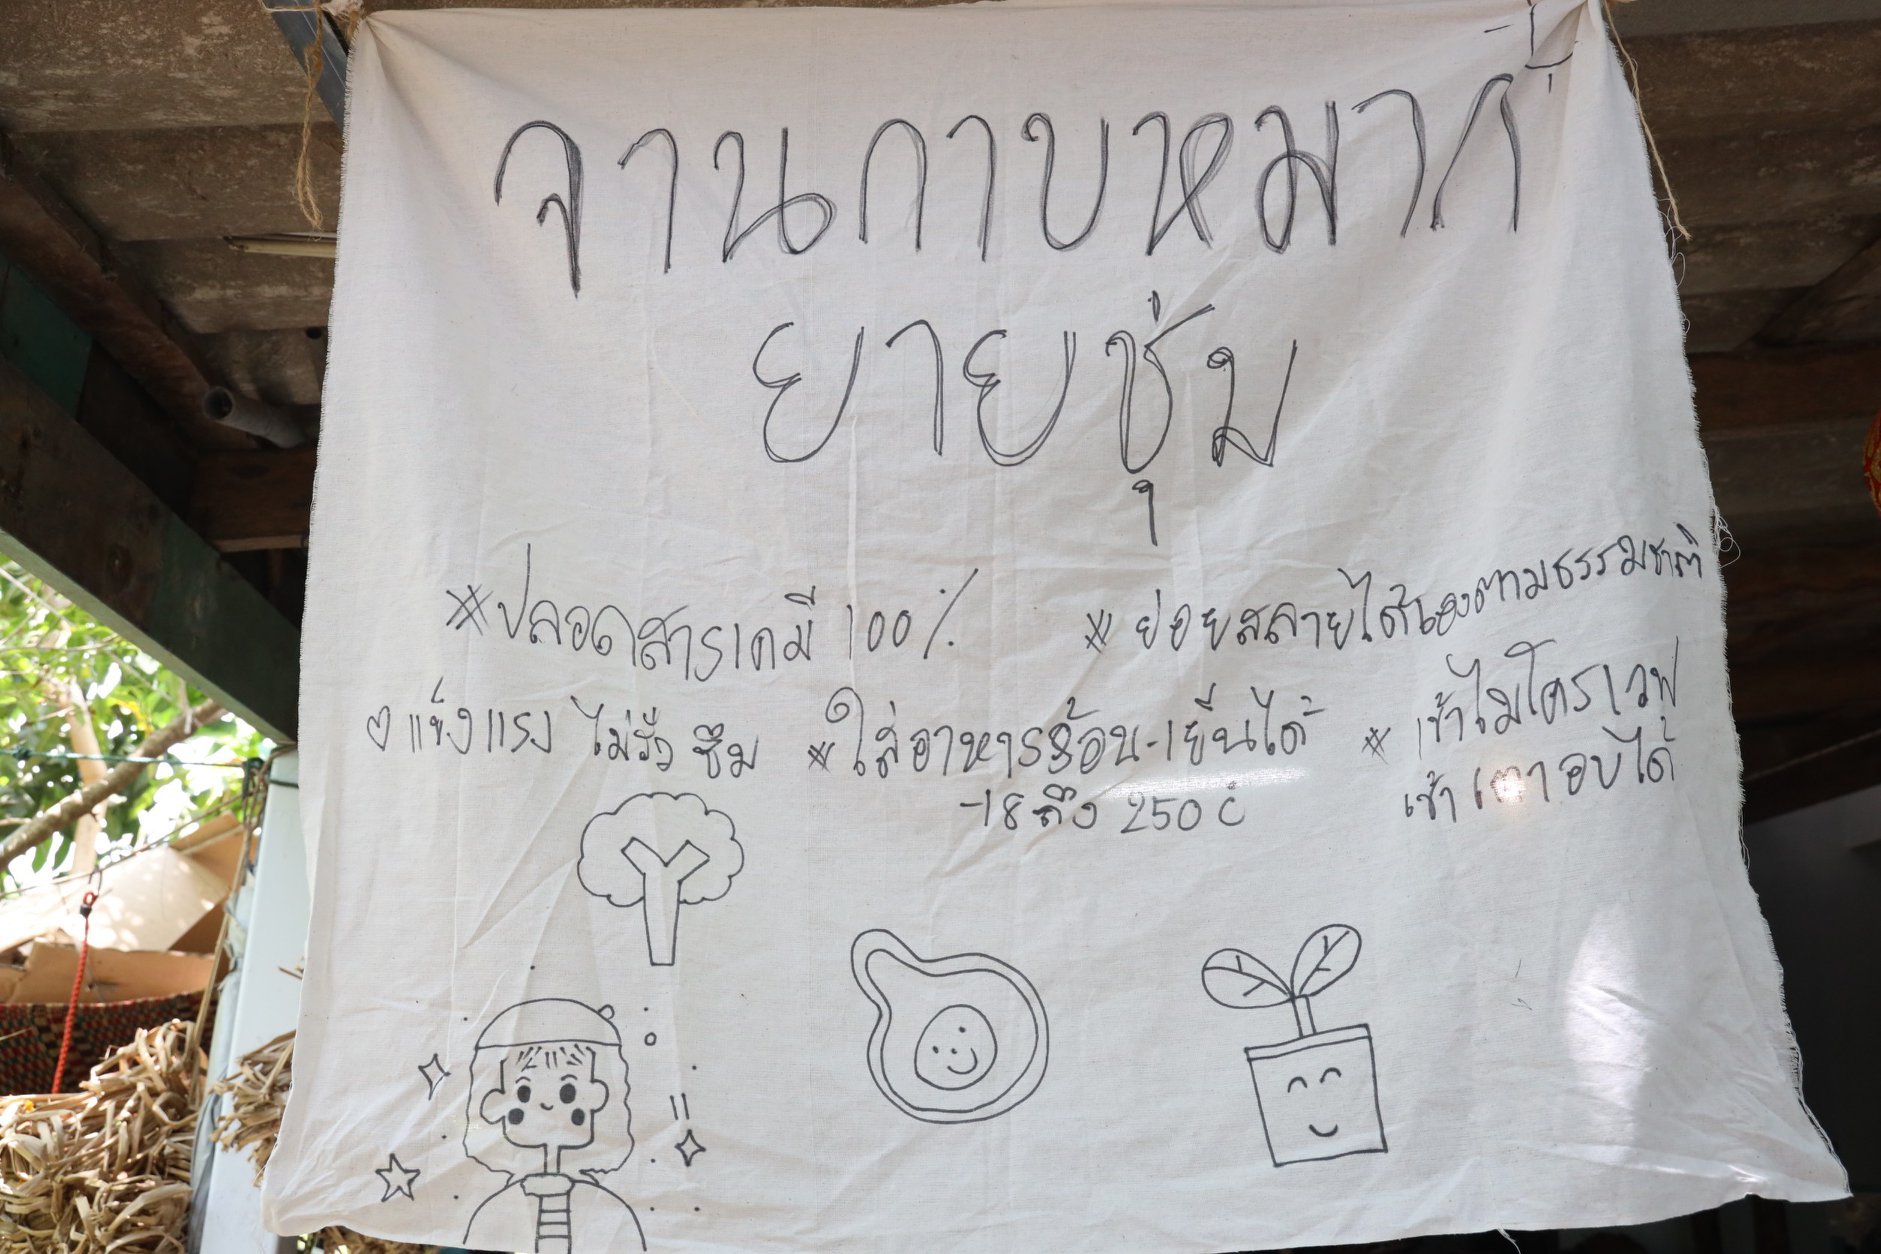 จานกาบหมาก
ยายชุ่ม
*ปลอดสารเคมี 100%
*ย่อยสลายได้เองตามธรรมชาติ
แข็งแรง ไม่รั่ว ซึม
*ใส่อาหารร้อน-เย็นได้
-18 ถึง 250 C
*เข้าไมโครเวฟ
เข้าเตาอบได้